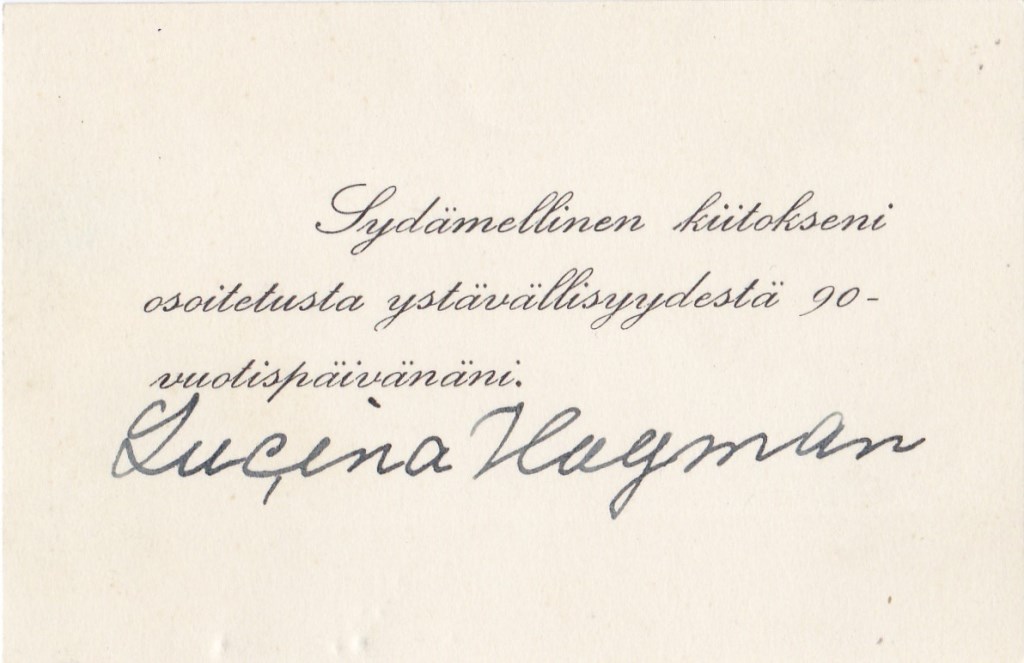 Sydämellinen kiitokseni
osoitetusta ystävällisyydestä 90-
vuotispäivänäni.
Lucina Hagman